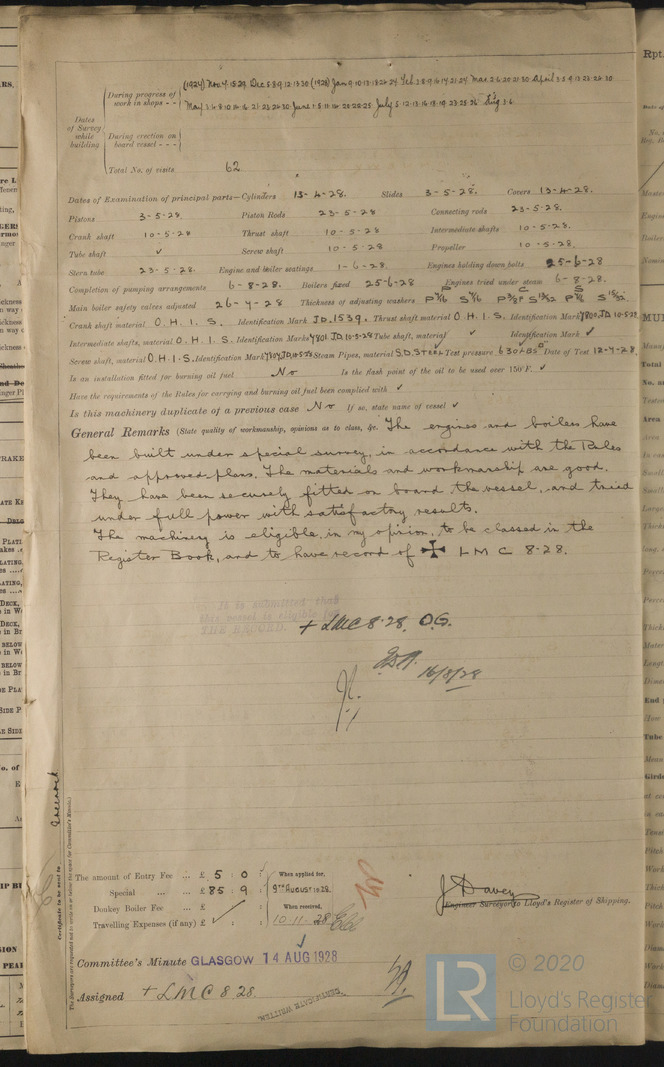 During progress of work in shops - -
Dates of Survey while building
During erection on board vessel - - -
Total No. of visits 62
Dates of Examination of principal parts—Cylinders 13-4-28. Slides 3-5-28. Covers 13-4-28.
Pistons 3-5-28 Piston Rods 23-5-28 Connecting rods 23-5-28.
Crank shaft 10-5-28 Thrust shaft 10-5-28 Intermediate shafts 10-5-28.
Tube shaft ✓ Screw shaft 10-5-28 Propeller 10-5-28.
Stern tube 23-5-28. Engine and boiler seatings 1-6-28. Engines holding down bolts 25-6-28
Completion of pumping arrangements 6-8-28. Boilers fixed 25-6-28 Engines tried under steam 6-8-28.
Main boiler safety valves adjusted 26-7-28 Thickness of adjusting washers
Crank shaft material O.H.I.S. Identification Mark JD.1539. Thrust shaft material O.H.I.S. Identification Mark 7800.JD 10-5-28
Intermediate shafts, material O.H.I.S. Identification Marks 7801 JD 10-5-28 Tube shaft, material ✓ Identification Mark ✓
Screw shaft, material O.H.I.S. Identification Mark JD.10-5-28 Steam Pipes, material S.D.STEEL Test pressure 630 LBS Date of Test 12-7-28
Is an installation fitted for burning oil fuel No Is the flash point of the oil to be used over 150°F. ✓
Have the requirements of the Rules for carrying and burning oil fuel been complied with ✓
Is this machinery duplicate of a previous case No If so, state name of vessel ✓
General Remarks (State quality of workmanship, opinions as to class, &c. The engines and boilers have
been built under special survey, in accordance with the Rules
and approved plans. The materials and workmanship are good.
They have been securely fitted on board the vessel, and tried
under full power with satisfactory results.
The machinery is eligible, in my opinion, to be classed in the
Register Book, and to have record of ✠ L M C 8-28.
It is submitted that
this vessel is eligible for
THE RECORD.
+ LMC 8.28. O.G.
16/8/28
Greenock
Certificate to be sent to
The Surveyors are requested not to write on or below the space for Committee's Minute.
The amount of Entry Fee ... £ 5 : 0 : When applied for,
Special ... ... £ 85 : 9 : 9TH AUGUST 1928.
Donkey Boiler Fee ... £ : : When received,
Travelling Expenses (if any) £ : : 10.11.28
J Davey
Engineer Surveyor to Lloyd's Register of Shipping.
Committee's Minute GLASGOW 14 AUG 1928
Assigned + LMC 8.28.
CERTIFICATE WRITTEN
LR © 2020
Lloyd's Register
Foundation